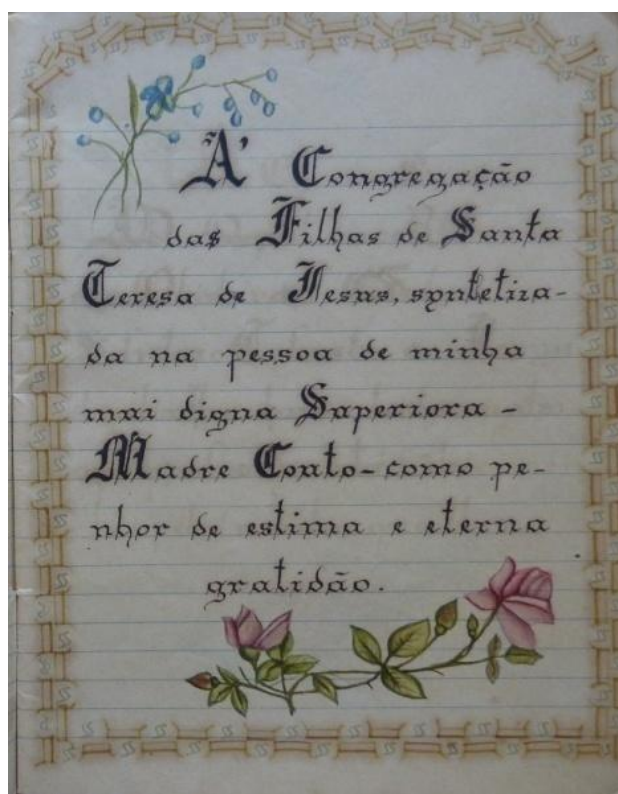 À Congregação
das Filhas de Santa
Teresa de Jesus, syntetiza-
da na pessoa de minha
mai digna Superiora -
Madre Couto - como pe-
nhor de estima e eterna
gratidão.